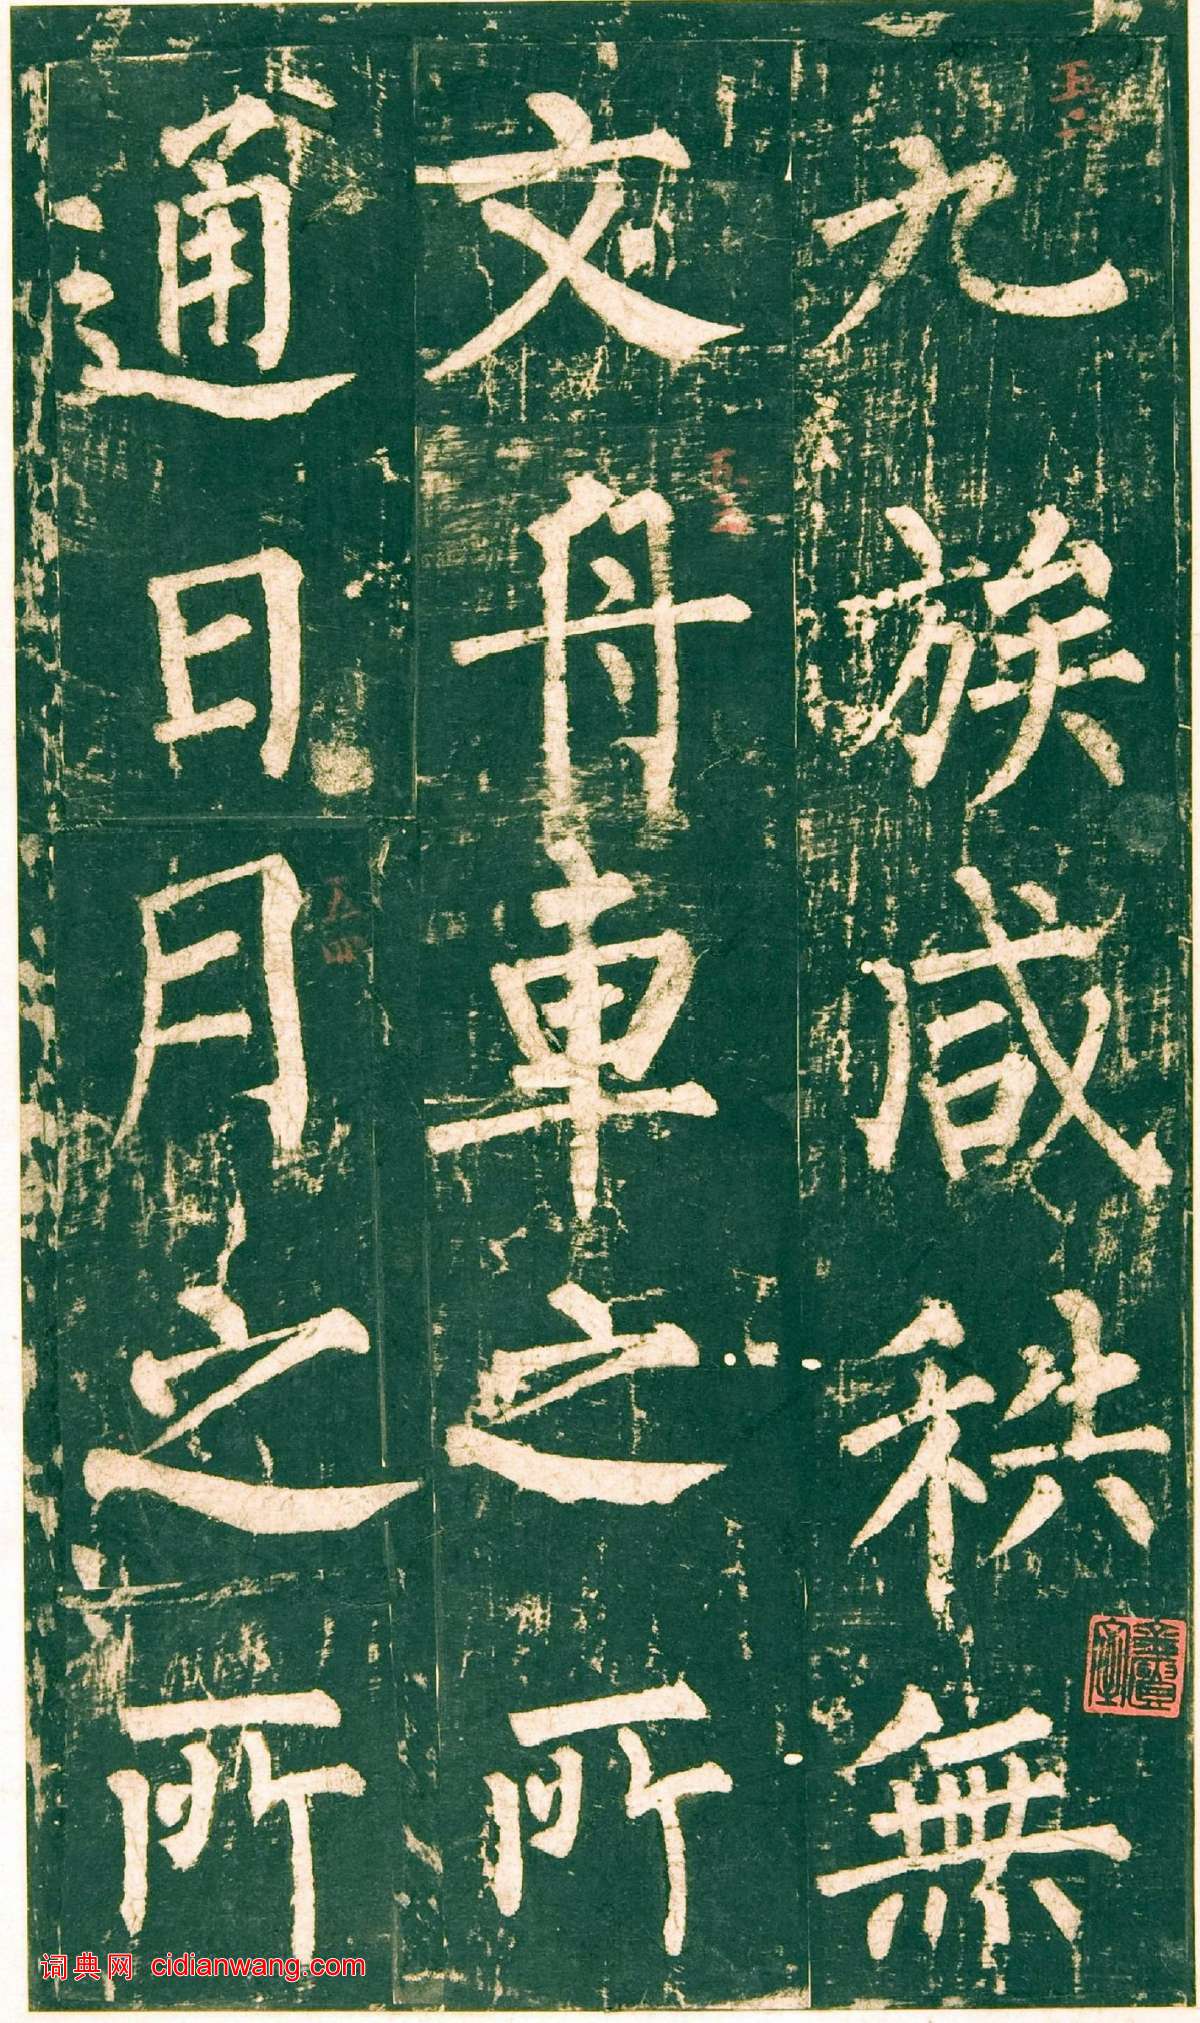 九族咸秩無
文舟車之所
通日月之所
五二
五三
五四
词典网 cidianwang.com